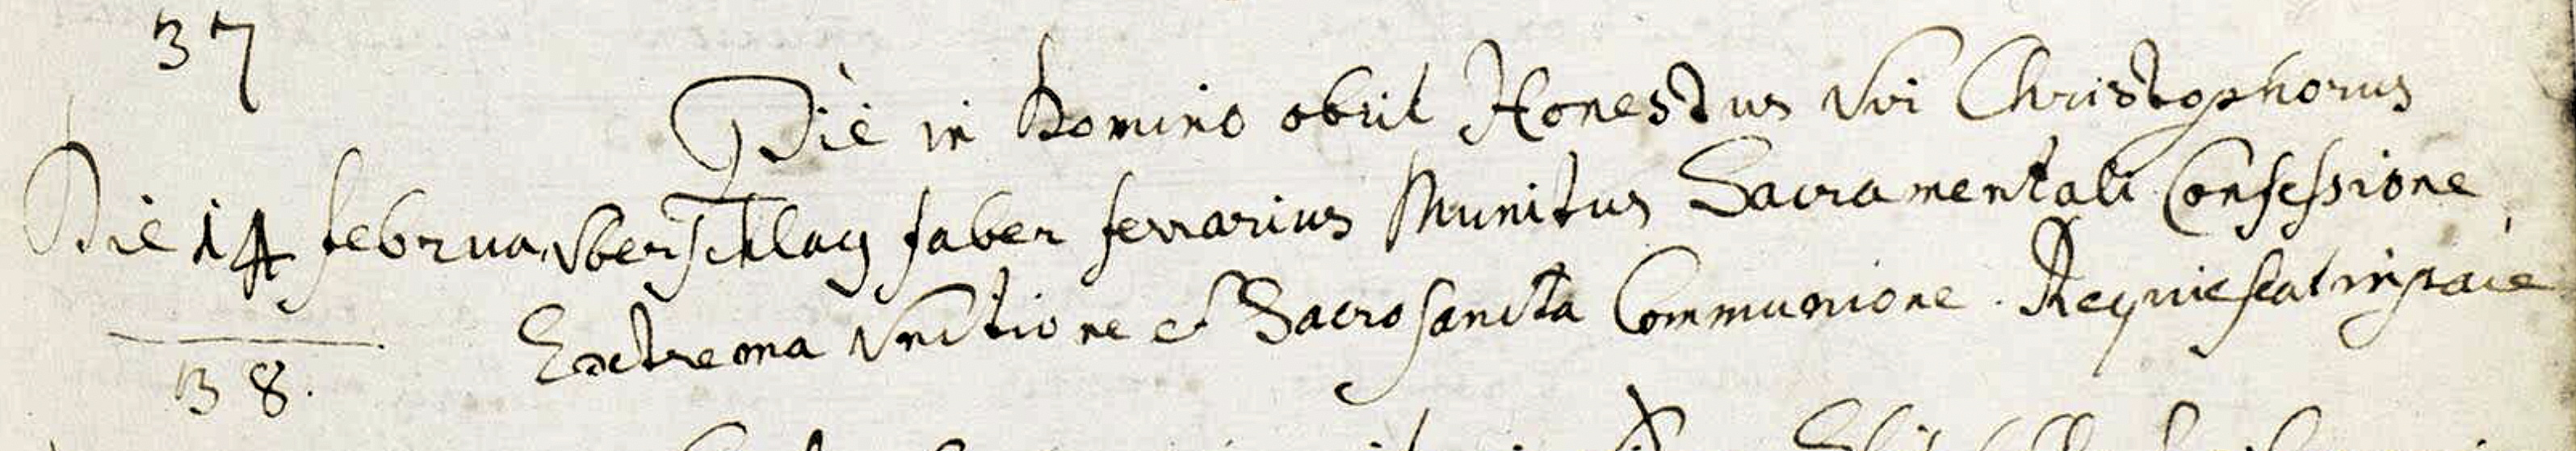 37
Piè in Domino obiit Honestus Vir Christophorus
Die 14 februa. Vberschlag faber ferrarius Munitus Sacramentali Confessione,
Extrema Unctione et Sacrosancta Communione. Requiescat in pace
38.